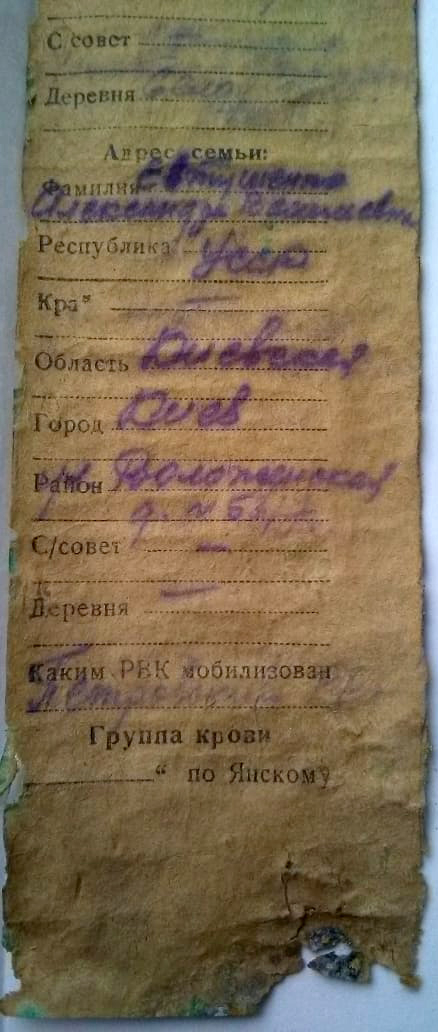 С/совет
Деревня
Адрес семьи:
Фамилия Евтушенко
Александра
Республика Усср
Край —
Область Киевская
Город Киев
Район ул Воложенская
д. №
С/совет —
Деревня —
Каким РВК мобилизован
Петровским
Группа крови
“ по Янскому